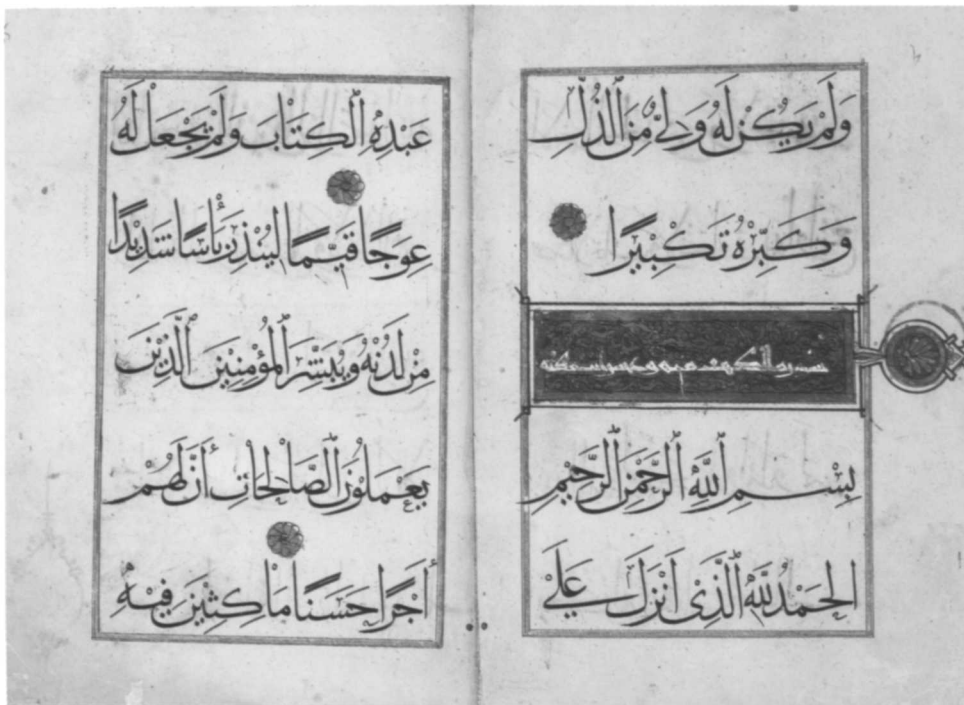 وَلَمْ يَكُنْ لَهُ وَلِيٌّ مِنَ ٱلذُّلِّ
وَكَبِّرْهُ تَكْبِيرًا
سورة الكهف
بِسْمِ ٱللَّهِ ٱلرَّحْمٰنِ ٱلرَّحِيمِ
الحَمْدُ لِلَّهِ ٱلَّذِى اَنْزَلَ عَلَى
عَبْدِهِ ٱلْكِتَابَ وَلَمْ يَجْعَلْ لَهُ
عِوَجًا قَيِّمًا لِيُنْذِرَ بَأْسًا شَدِيدًا
مِنْ لَدُنْهُ وَيُبَشِّرَ ٱلْمُؤْمِنِينَ ٱلَّذِينَ
يَعْمَلُونَ ٱلصَّالِحَاتِ أَنَّ لَهُمْ
أَجْرًا حَسَنًا مَاكِثِينَ فِيهِ